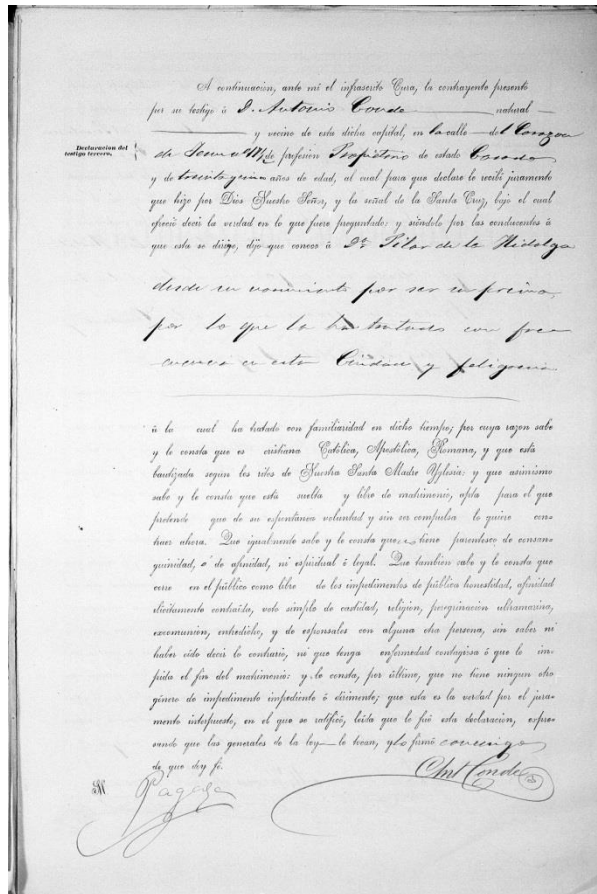 A continuacion, ante mi el infrascrito Cura, la contrayente presentó
por su testigo á D. Antonio Conde natural
y vecino de esta dicha capital, en la calle del Corazon
Declaracion del
testigo tercero.
de Jesus nº de profesion Propietario de estado Casado
y de treinta años de edad, al cual para que declare le recibí juramento
que hizo por Dios Nuestro Señor, y la señal de la Santa Cruz, bajo el cual
ofreció decir la verdad en lo que fuere preguntado: y siéndolo por las conducentes á
que esta se dirige, dijo que conoce á Dª Pilar de la Hidalga
desde su nacimiento por ser su prima,
por lo que la ha tratado con fre
cuencia en esta Ciudad y feligresia
á la cual ha tratado con familiaridad en dicho tiempo; por cuya razon sabe
y le consta que es cristiana Católica, Apostólica, Romana, y que está
bautizada segun los ritos de Nuestra Santa Madre Yglesia: y que asimismo
sabe y le consta que está suelta y libre de matrimonio, apta para el que
pretende que de su espontánea voluntad y sin ser compulsa lo quiere con-
traer ahora. Que igualmente sabe y le consta que no tiene parentesco de consan-
guinidad, ó de afinidad, ni espiritual ó legal. Que tambien sabe y le consta que
corre en el público como libre de los impedimentos de pública honestidad, afinidad
ilícitamente contraida, voto simple de castidad, religion, peregrinacion ultramarina,
excomunion, entredicho, y de esponsales con alguna otra persona, sin saber ni
haber oido decir lo contrario, ni que tenga enfermedad contagiosa ó que le im-
pida el fin del matrimonio: y le consta, por último, que no tiene ningun otro
género de impedimento impediente ó dirimente; que esta es la verdad por el jura-
mento interpuesto, en el que se ratificó, leida que le fué esta declaracion, expre-
sando que las generales de la ley le tocan, y lo firmó conmigo
de que doy fé.
Ant Conde
Pagaza